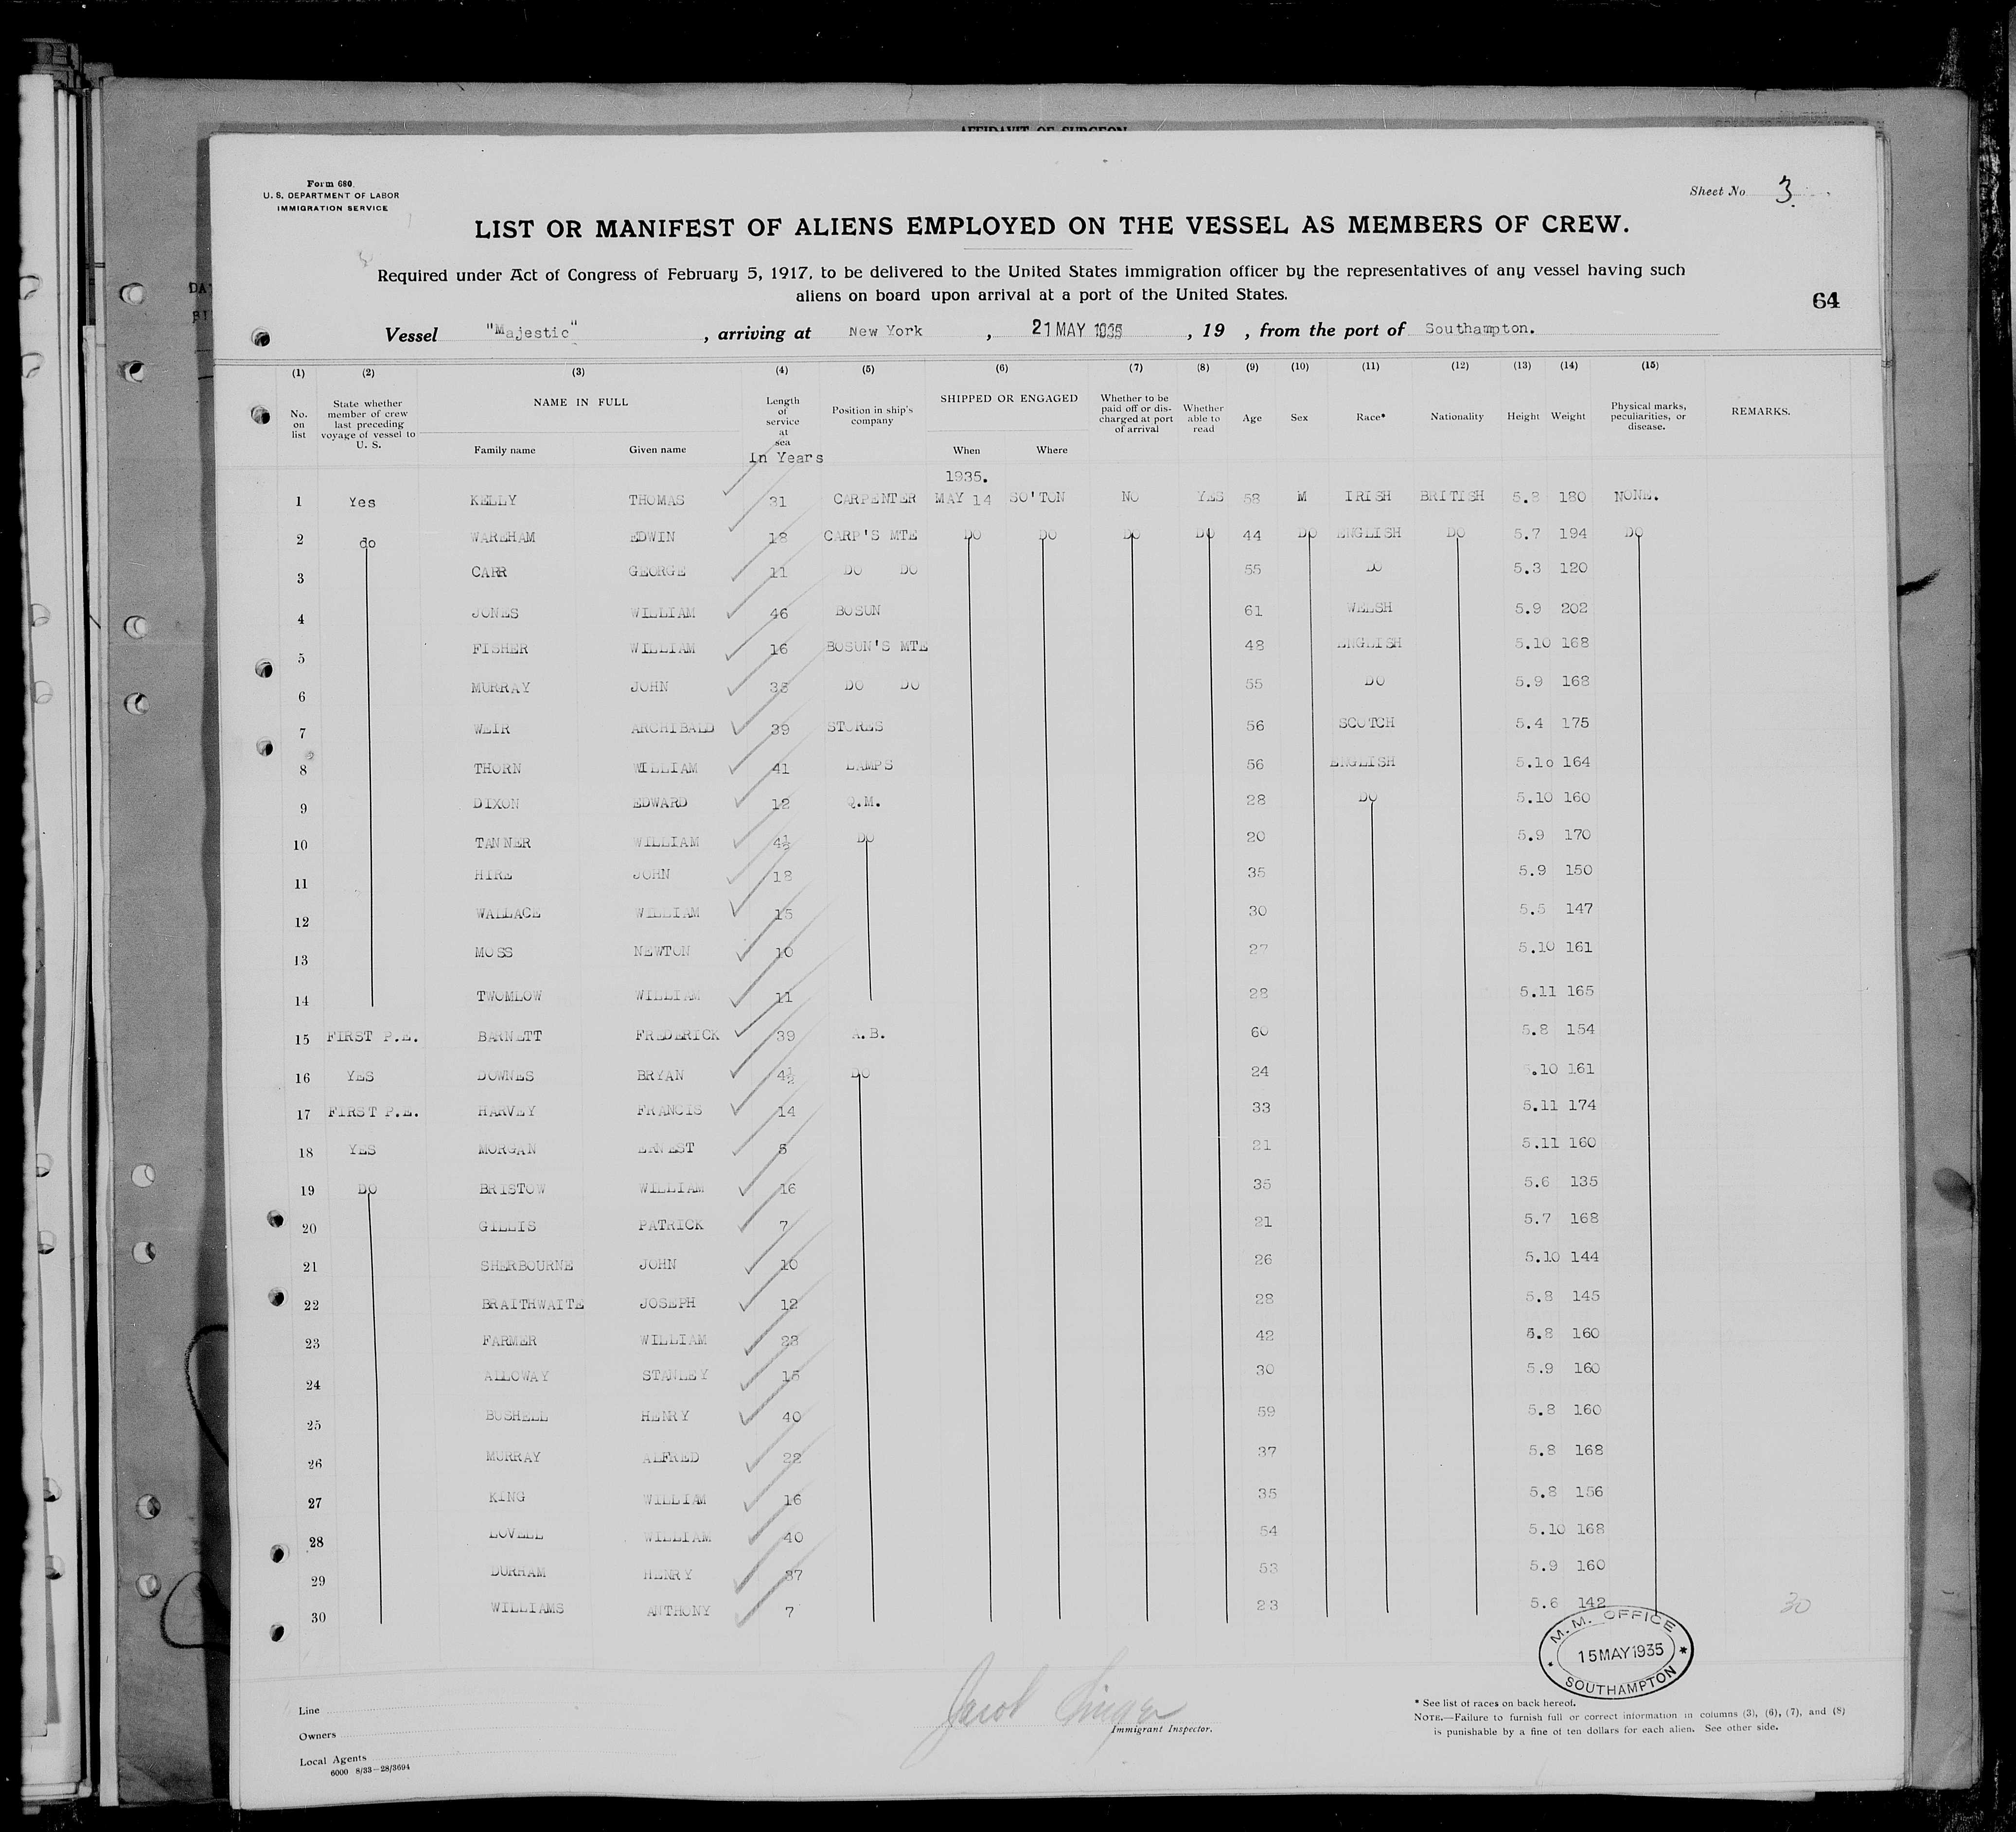 AFFIDAVIT OF SURGEON
Form 680.
U. S. DEPARTMENT OF LABOR
IMMIGRATION SERVICE
Sheet No 3.
LIST OR MANIFEST OF ALIENS EMPLOYED ON THE VESSEL AS MEMBERS OF CREW.
Required under Act of Congress of February 5, 1917, to be delivered to the United States immigration officer by the representatives of any vessel having such
aliens on board upon arrival at a port of the United States.
64
Vessel "Majestic" , arriving at New York , 21 MAY 1935 , 19 , from the port of Southampton.
(1) (2) (3) (4) (5) (6) (7) (8) (9) (10) (11) (12) (13) (14) (15)
No. on list State whether member of crew last preceding voyage of vessel to U. S. NAME IN FULL Family name Given name Length of service at sea In Years Position in ship's company SHIPPED OR ENGAGED When Where Whether to be paid off or discharged at port of arrival Whether able to read Age Sex Race* Nationality Height Weight Physical marks, peculiarities, or disease. REMARKS.
1935.
1 Yes KELLY THOMAS 31 CARPENTER MAY 14 SO'TON NO YES 58 M IRISH BRITISH 5.8 180 NONE.
2 do WAREHAM EDWIN 18 CARP'S MTE DO DO DO DO 44 DO ENGLISH DO 5.7 194 DO
3 CARR GEORGE 11 DO DO 55 DO 5.3 120
4 JONES WILLIAM 46 BOSUN 61 WELSH 5.9 202
5 FISHER WILLIAM 16 BOSUN'S MTE 48 ENGLISH 5.10 168
6 MURRAY JOHN DO DO 55 DO 5.9 168
7 WEIR ARCHIBALD 39 STORES 56 SCOTCH 5.4 175
8 THORN WILLIAM 41 LAMPS 56 ENGLISH 5.10 164
9 DIXON EDWARD 12 Q.M. 28 DO 5.10 160
10 TANNER WILLIAM 4½ DO 20 5.9 170
11 HIRE JOHN 18 35 5.9 150
12 WALLACE WILLIAM 15 30 5.5 147
13 MOSS NEWTON 10 27 5.10 161
14 TWOMLOW WILLIAM 11 28 5.11 165
15 FIRST P.E. BARNETT FREDERICK 39 A.B. 60 5.8 154
16 YES DOWNES BRYAN 4½ DO 24 5.10 161
17 FIRST P.E. HARVEY FRANCIS 14 33 5.11 174
18 YES MORGAN ERNEST 21 5.11 160
19 DO BRISTOW WILLIAM 16 35 5.6 135
20 GILLIS PATRICK 7 21 5.7 168
21 SHERBOURNE JOHN 10 26 5.10 144
22 BRAITHWAITE JOSEPH 12 28 5.8 145
23 FARMER WILLIAM 28 42 5.8 160
24 ALLOWAY STANLEY 15 30 5.9 160
25 BUSHELL HENRY 40 59 5.8 160
26 MURRAY ALFRED 22 37 5.8 168
27 KING WILLIAM 16 35 5.8 156
28 LOVELL WILLIAM 40 54 5.10 168
29 DURHAM HENRY 37 53 5.9 160
30 WILLIAMS ANTHONY 7 23 5.6 142
30
M. M. OFFICE
15 MAY 1935
SOUTHAMPTON
Line
Owners
Local Agents
6000 8/33—28/3694
Jacob Singer
Immigrant Inspector.
* See list of races on back hereof.
NOTE.—Failure to furnish full or correct information in columns (3), (6), (7), and (8)
is punishable by a fine of ten dollars for each alien. See other side.